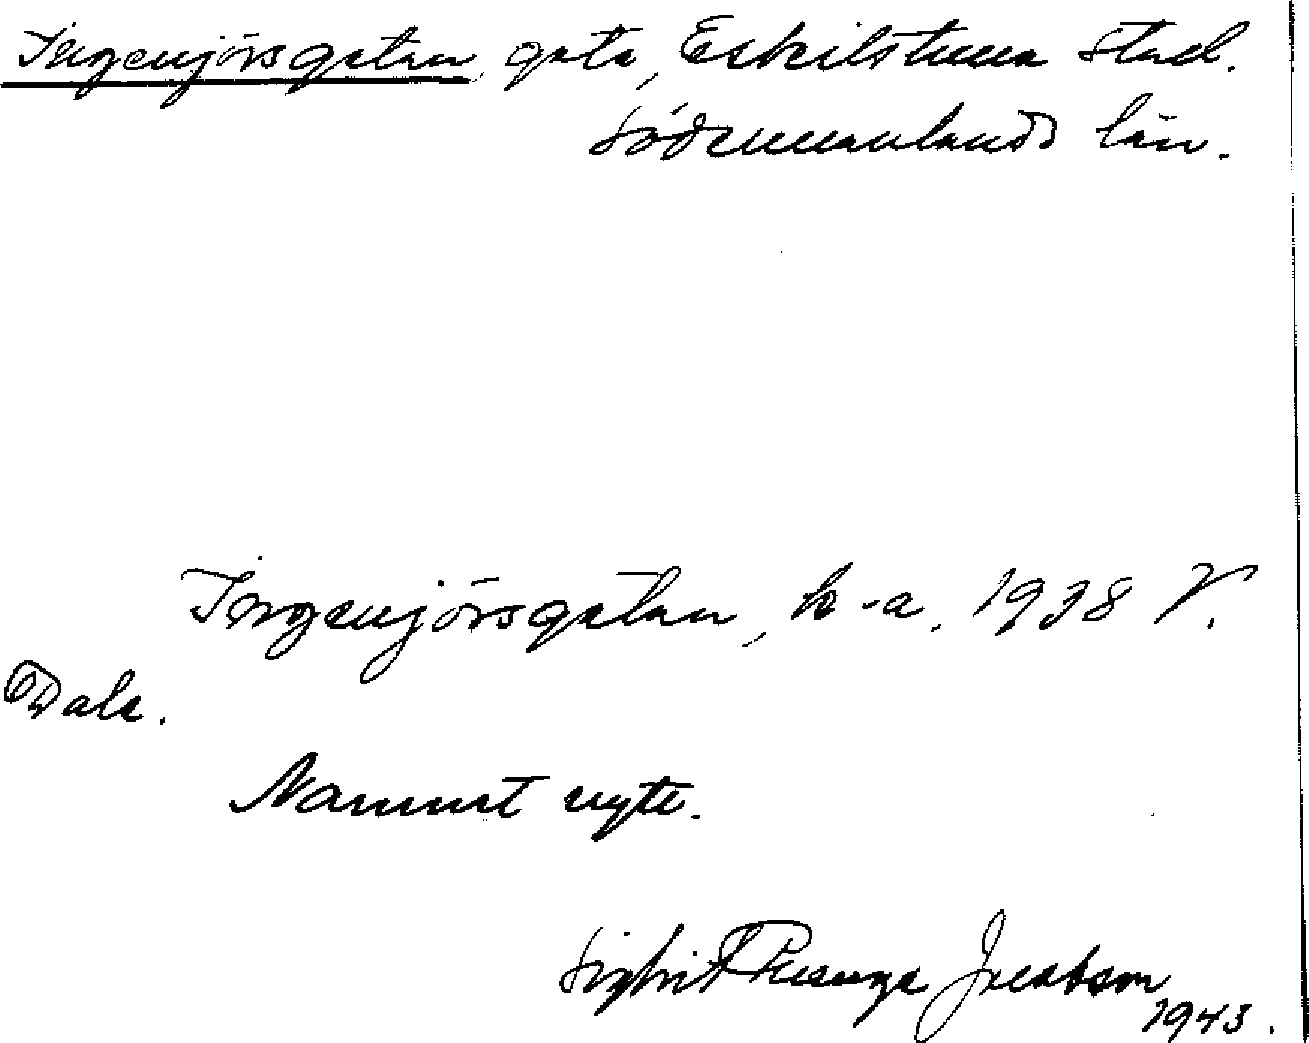 Ingenjörsgatan, gata, Eskilstuna stad.
Södermanlands län.
Ingenjörsgatan, k-a. 1938 V.
Dala.
Namnet nytt.
Sigbrit Jacobson
1943.